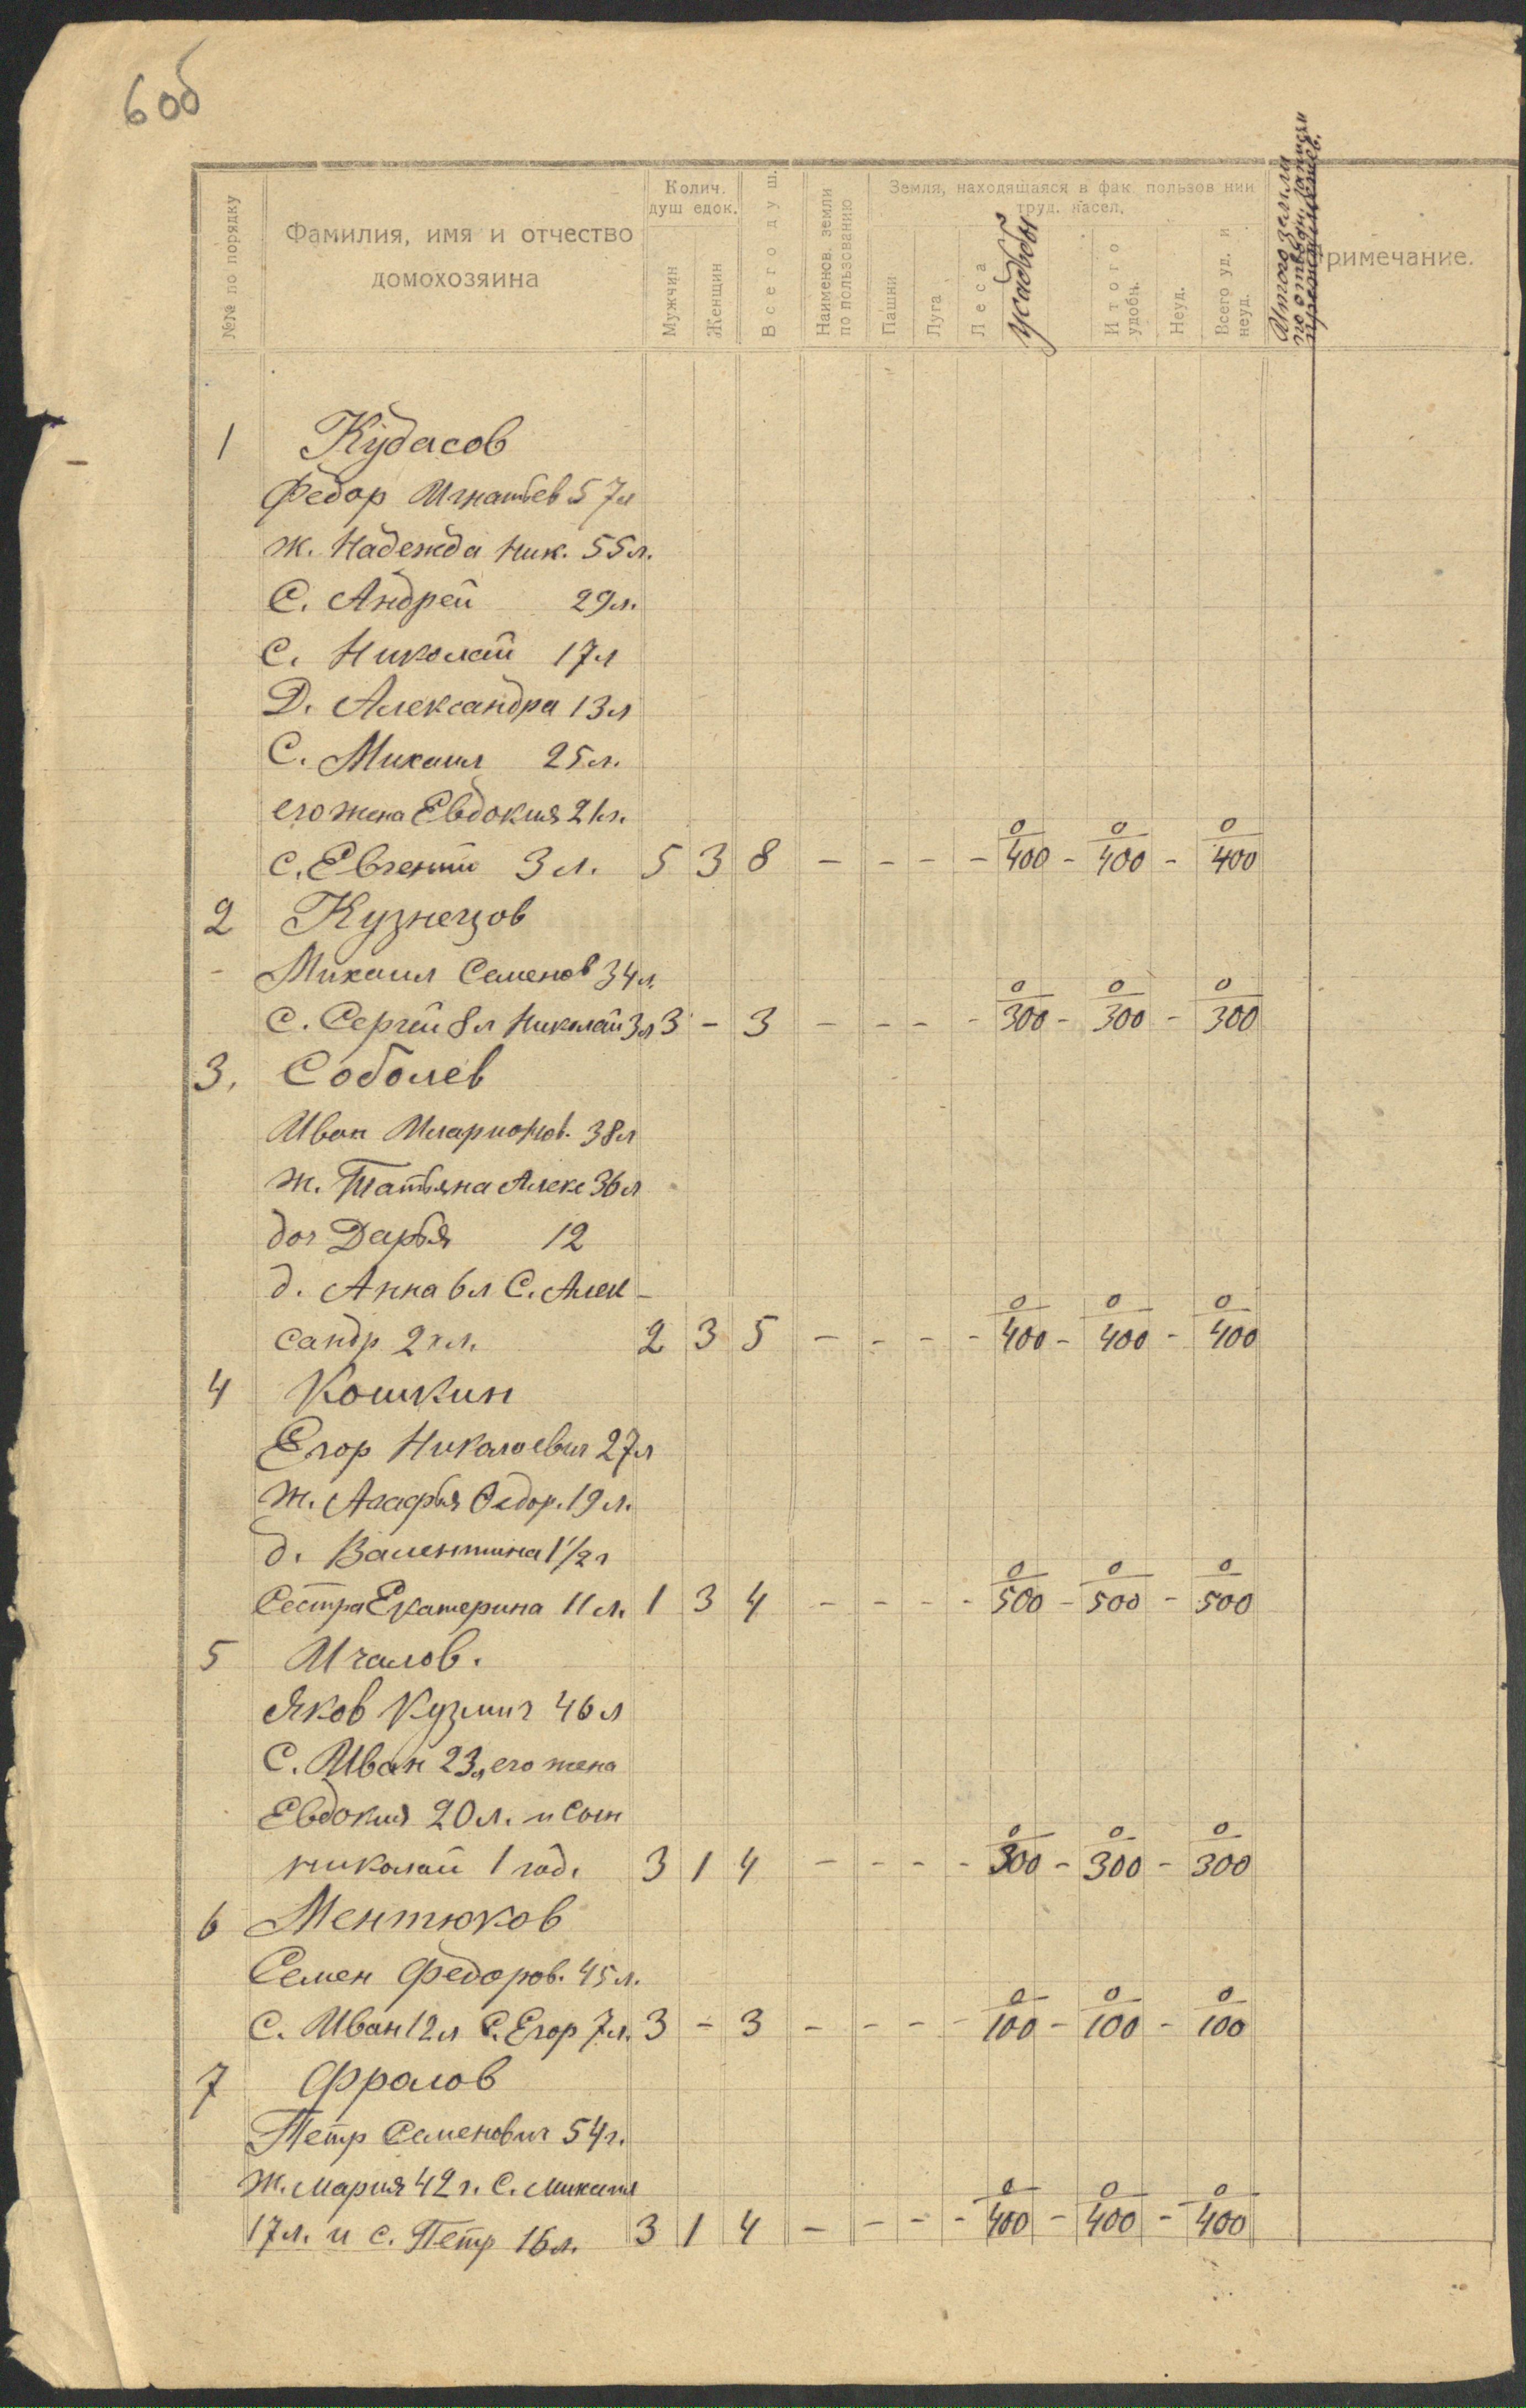 6 об
№№ по порядку
Фамилия, имя и отчество домохозяина
Колич. душ едок.
Мужчин
Женщин
Всего душ.
Наименов. земли по пользованию
Земля, находящаяся в фак. пользов нии труд. насел.
Пашни
Луга
Леса
усадьбы
Итого удобн.
Неуд.
Всего уд. и неуд.
Итого земли
по отводн. записи
Примечание.
1 Кудасов
Федор Игнатьев 57л
ж. Надежда Ник. 55л.
С. Андрей 29л.
С. Николай 17л
Д. Александра 13л
С. Михаил 25л.
его жена Евдокия 21г.
с. Евгений 3л. 5 3 8 - - - - 0/400 - 0/400 - 0/400
2 Кузнецов
- Михаил Семенов 34л.
С. Сергей 8л Николай 3л 3 - 3 - - - - 0/300 - 0/300 - 0/300
3. Соболев
Иван Иларионов. 38л
ж. Татьяна Алекс 36л
доч Дарья 12
д. Анна 6л С. Алек-
сандр 2х л. 2 3 5 - - - - 0/400 - 0/400 - 0/400
4 Кошкин
Егор Николаевич 27л
ж. Агафья Федор. 19л.
д. Валентина 1 1/2 г
Сестра Екатерина 11л. 1 3 4 - - - - 0/500 - 0/500 - 0/500
5 Ичалов.
Яков Кузмич 46л
С. Иван 23л его жена
Евдокия 20л. и сын
николай 1 год. 3 1 4 - - - - 0/300 - 0/300 - 0/300
6 Ментюков
Семен Федоров. 45л.
С. Иван 12л С. Егор 7л. 3 - 3 - - - - 0/100 - 0/100 - 0/100
7 Фролов
Петр Семенович 54г.
ж. Мария 42г. С. Михаил
17л. и с. Петр 16л. 3 1 4 - - - - 0/400 - 0/400 - 0/400